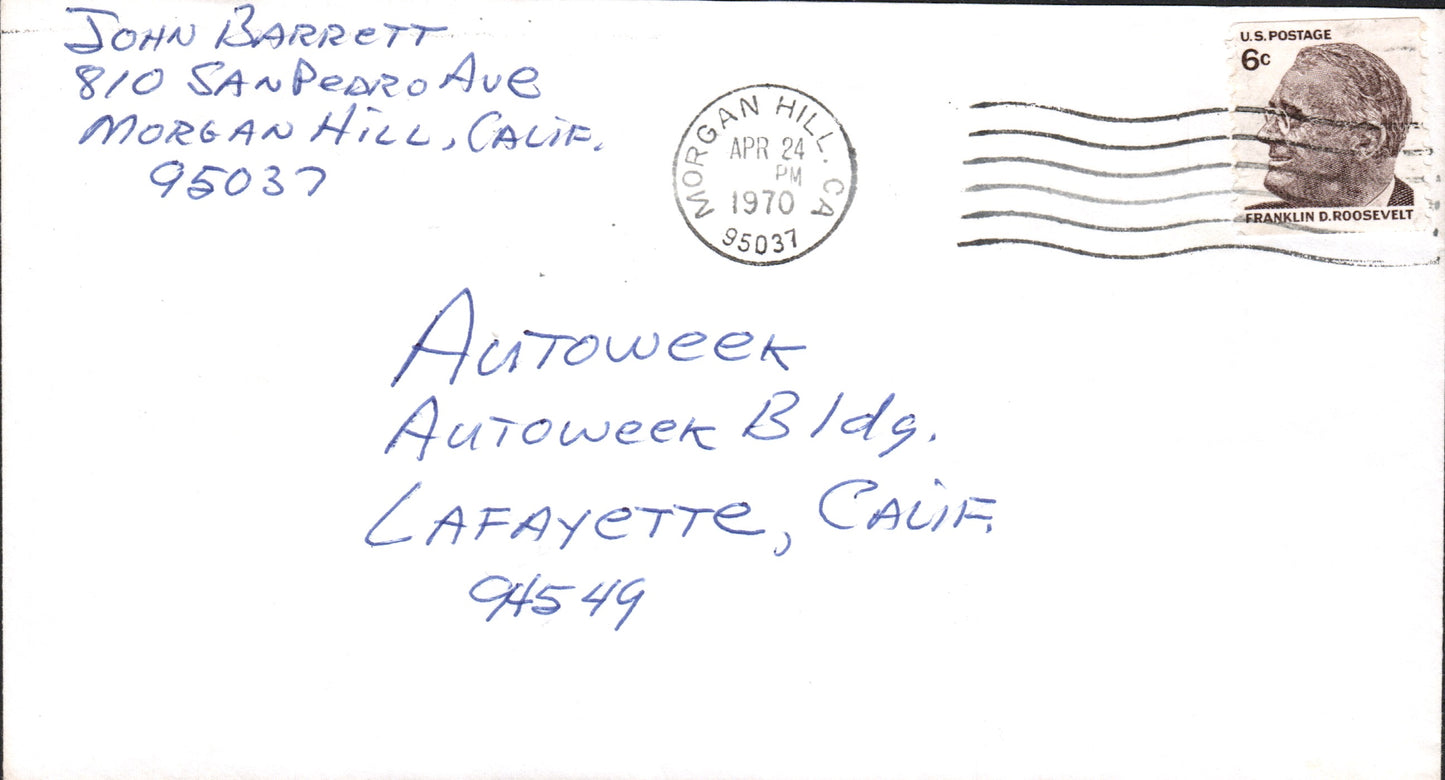 John Barrett
810 San Pedro Ave
Morgan Hill, Calif.
95037
MORGAN HILL, CA
APR 24
PM
1970
95037
U.S. POSTAGE
6c
FRANKLIN D. ROOSEVELT
Autoweek
Autoweek Bldg.
Lafayette, Calif.
94549